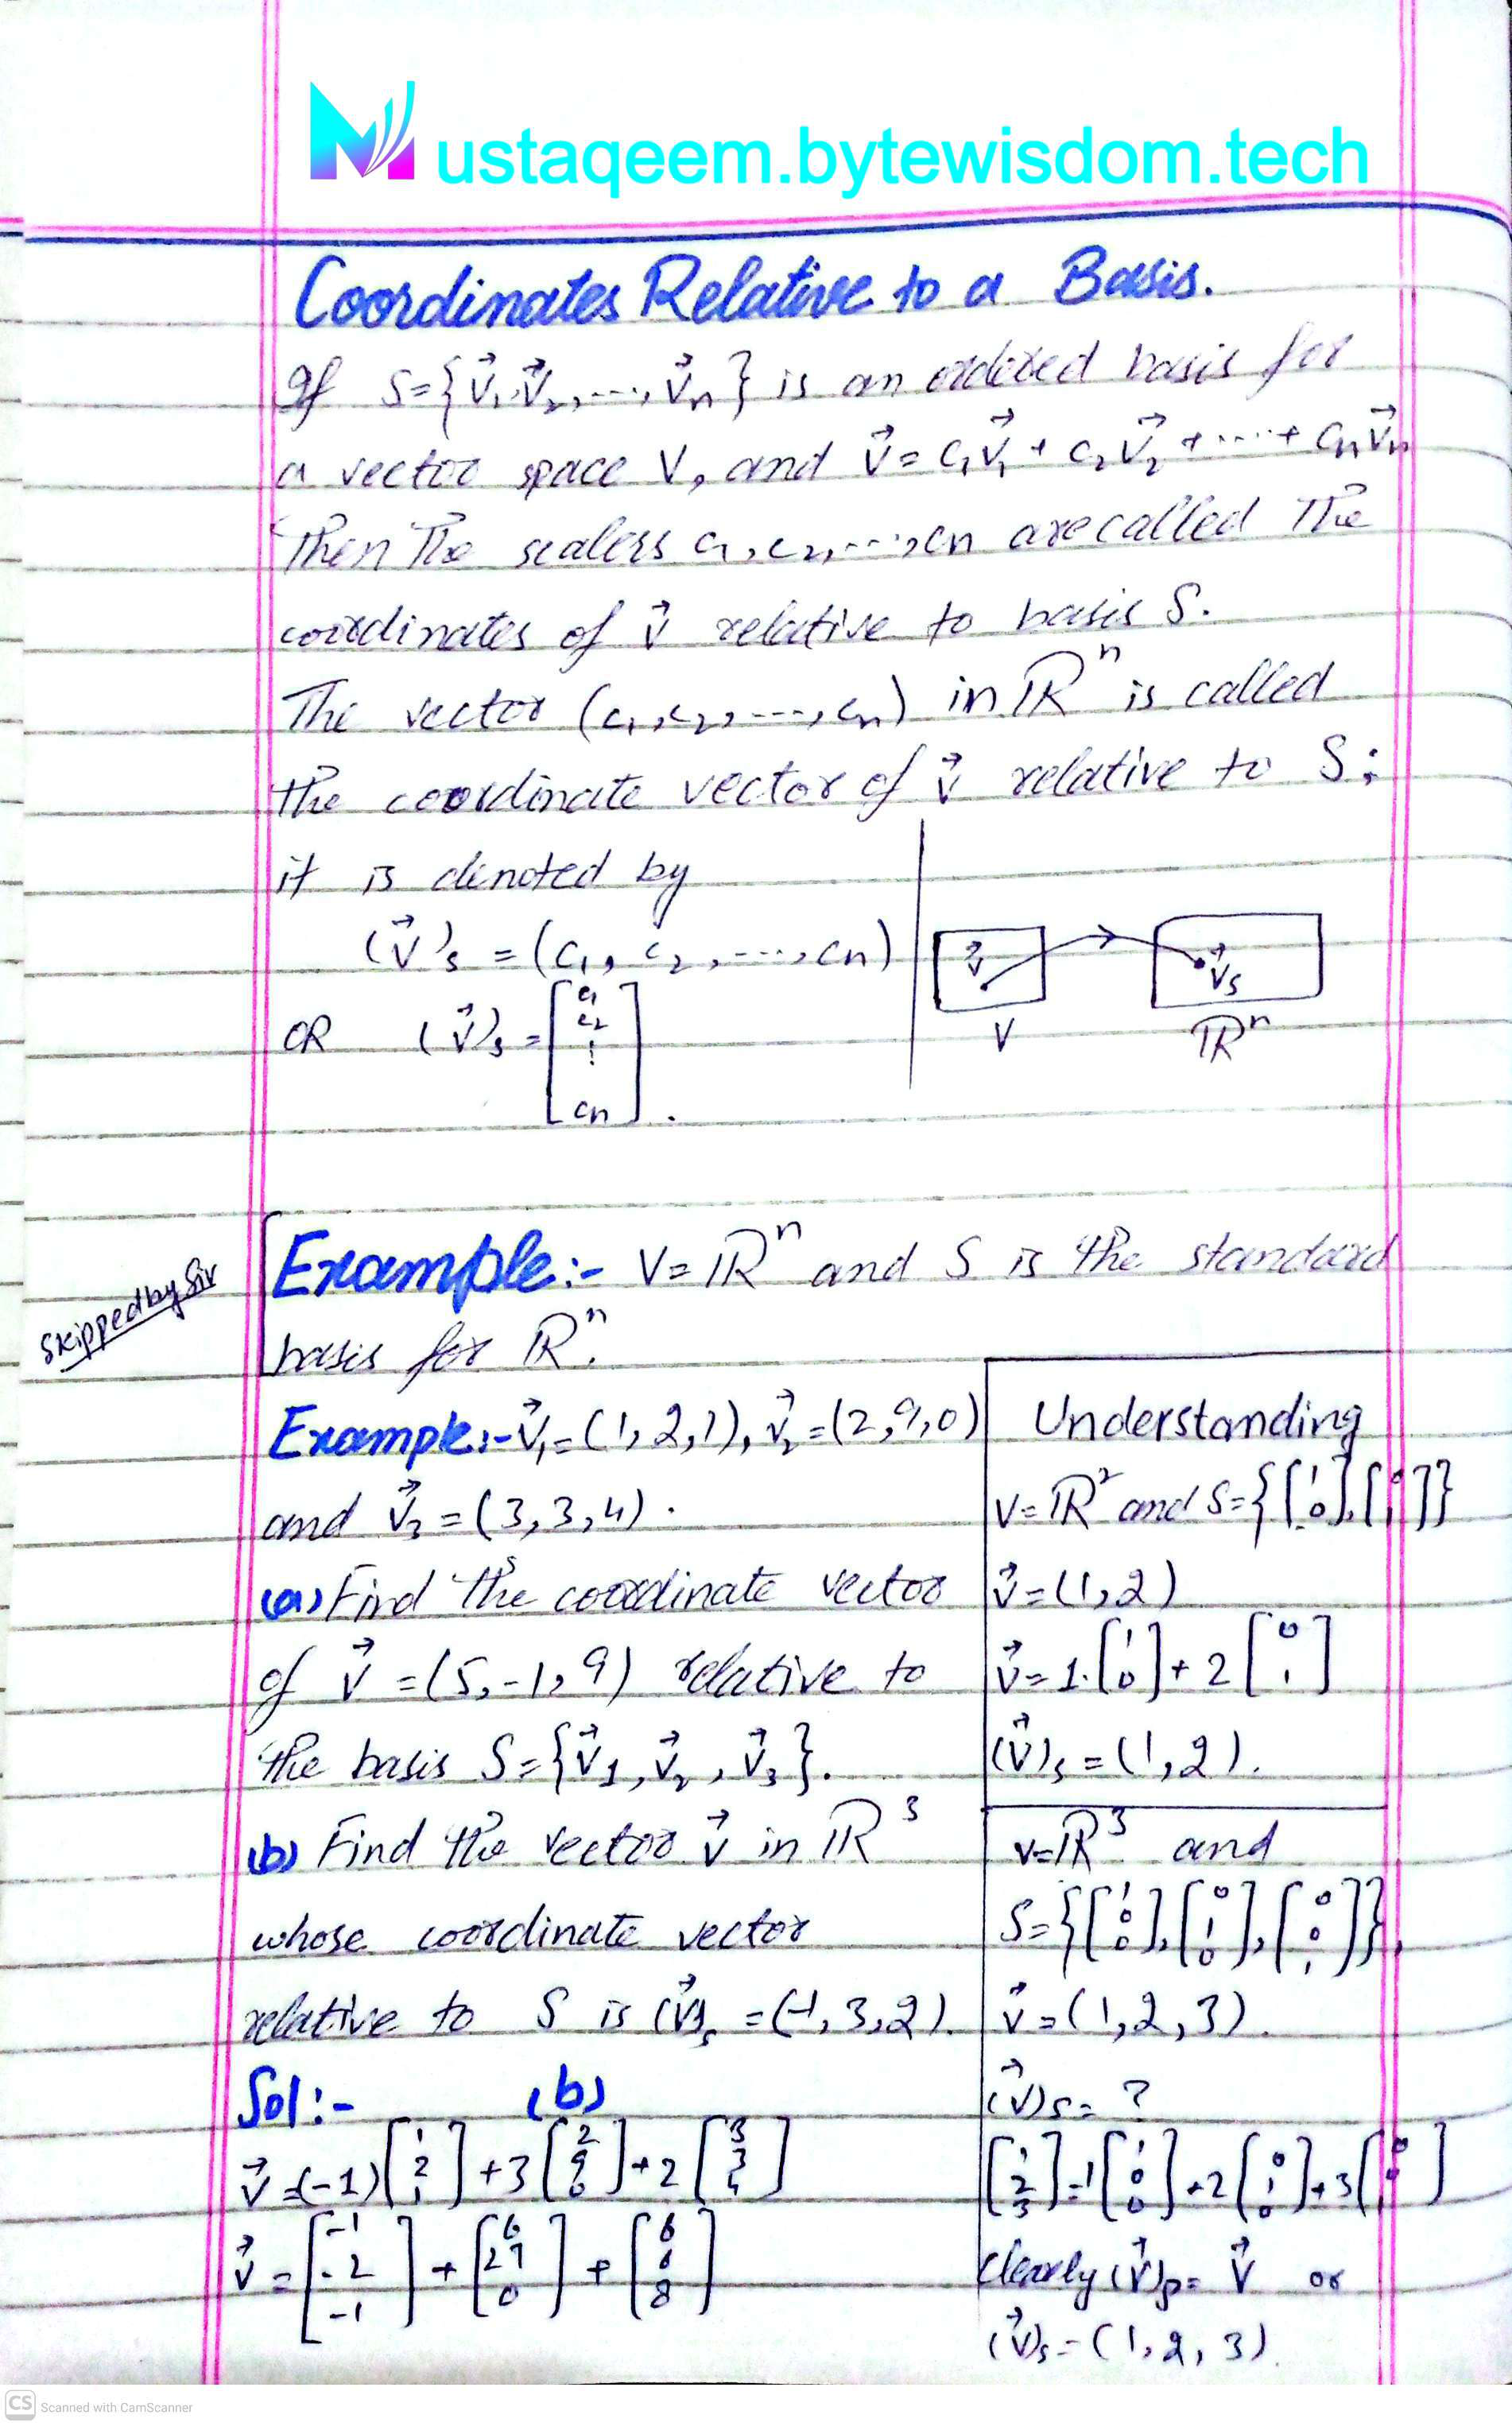 Mustaqeem.bytewisdom.tech
Coordinates Relative to a Basis.
If S={v⃗₁,v⃗₂,...,v⃗ₙ} is an ordered basis for
a vector space V, and v⃗ = c₁v⃗₁ + c₂v⃗₂ + ... + cₙv⃗ₙ
Then The scalers c₁,c₂,...,cn are called The
coordinates of v⃗ relative to basis S.
The vector (c₁,c₂,...,cₙ) in ℝⁿ is called
the coordinate vector of v⃗ relative to S;
it is denoted by
(v⃗)s = (c₁, c₂, ..., cn)
OR (v⃗)s = [c₁ c₂ ⋮ cn].
v⃗ v⃗s
V ℝⁿ
Skipped by Sir
Example:- V=ℝⁿ and S is the standard
basis for ℝⁿ.
Example:- v⃗₁=(1,2,1), v⃗₂=(2,9,0)
and v⃗₃=(3,3,4).
(a) Find the coordinate vector
of v⃗=(5,-1,9) relative to
the basis S={v⃗₁,v⃗₂,v⃗₃}.
(b) Find the vector v⃗ in ℝ³
whose coordinate vector
relative to S is (v⃗)s =(-1,3,2).
Sol:- (b)
v⃗=(-1)[1 2 1]+3[2 9 0]+2[3 3 4]
v⃗=[-1 -2 -1]+[6 27 0]+[6 6 8]
Understanding
V=ℝ² and S={[1 0],[0 1]}
v⃗=(1,2)
v⃗=1.[1 0]+2[0 1]
(v⃗)s=(1,2).
V=ℝ³ and
S={[1 0 0],[0 1 0],[0 0 1]},
v⃗=(1,2,3).
(v⃗)s=?
[1 2 3]=1[1 0 0]+2[0 1 0]+3[0 0 1]
Clearly (v⃗)s= v⃗ or
(v⃗)s=(1,2,3).
CS Scanned with CamScanner